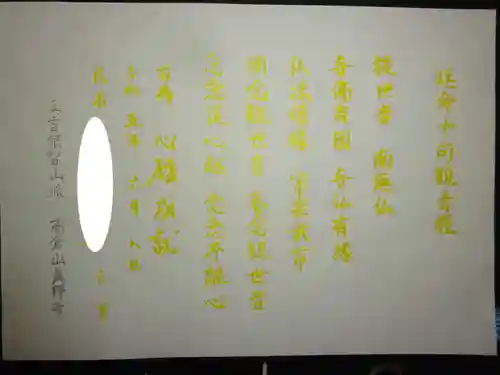 延命十句観音経
観世音 南無仏
与佛有因 与仏有縁
仏法僧縁 常楽我浄
朝念観世音 暮念観世音
念念従心起 念念不離心
右為 心願成就
令和 五年 六月 八日
真言宗智山派 高倉山真野寺